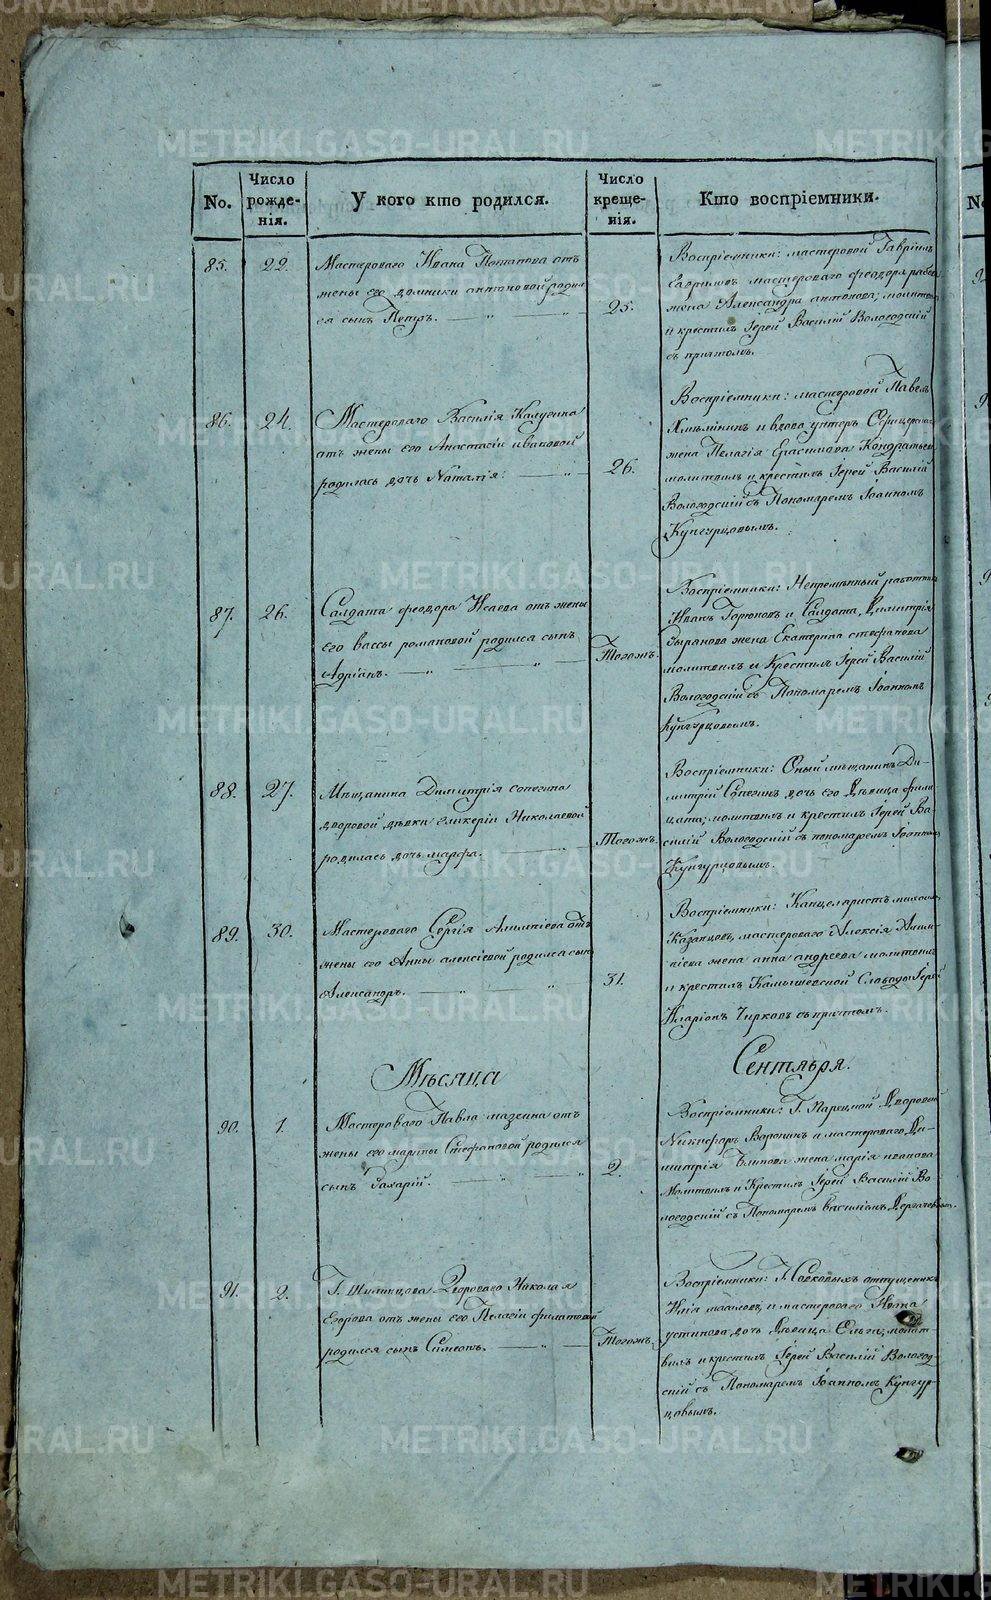 No.
Число рожде-нія.
У кого кто родился.
Число креще-нія.
Кто воспріемники.
85.
22.
Мастероваго Ивана Потапова отъ
жены его домники антоновой родил
ся сынъ Петръ.
25.
Воспріемники: мастеровой Гавріилъ
мастероваго феодора
жена Александра антонова; молитвилъ
и крестилъ Іерей Василій Вологодскій
съ причтомъ.
86.
24.
Мастероваго Василія Калугина
отъ жены его Анастасіи ивановой
родилась дочь Наталія.
26.
Воспріемники: мастеровой Павелъ
и вдова унтеръ
жена Пелагія Ерасимова
молитвилъ и крестилъ Іерей Василій
Вологодскій съ Пономаремъ Іоанномъ
Кунгурцовымъ.
87.
26.
Салдата феодора Исаева отъ жены
его вассы романовой родился сынъ
Адріанъ.
Тогожъ.
Воспріемники: Непременный работникъ
Иванъ Горюновъ и Салдата Димитрія
жена Екатерина стефанова
молитвилъ и Крестилъ Іерей Василій
Вологодскій съ Пономаремъ Іоанномъ
Кунгурцовымъ.
88.
27.
Мѣщанина Димитрія сопегина
дворовой дѣвки гликеріи Николаевой
родилась дочь марфа.
Тогожъ.
Воспріемники: Оный мѣщанинъ Ди-
митрій Сопегинъ дочь его Дѣвица
молитвилъ и крестилъ Іерей Ва-
силій Вологодскій съ пономаремъ Іоанномъ
Кунгурцовымъ.
89.
30.
Мастероваго Сергія Алимпіева отъ
жены его Анны алексіевой родился сынъ
Александръ.
31.
Воспріемники: Канцеляристъ михаилъ
Казанцовъ, мастероваго Алексія Алим-
піева жена анна андреева молитвилъ
и крестилъ Камышевской Слободы Іерей
Иларіонъ Чирковъ съ причтомъ.
Мѣсяца
Сентября.
90.
1.
Мастероваго Павла мазеина отъ
жены его марѳы Стефановой родился
сынъ Захарій.
2.
Воспріемники: Г. Дворовой
Никифоръ Воронинъ и мастероваго Ди-
митрія жена марія иванова
Молитвилъ и Крестилъ Іерей Василій Во-
логодскій съ Пономаремъ василіемъ
91.
2.
Г. Ширинцова Двороваго Николая
Егорова отъ жены его Пелагіи филатовой
родился сынъ Симеонъ.
Тогожъ.
Воспріемники: Г. отпущеникъ
и мастероваго Ивана
устинова дочь Дѣвица Ольга; молит-
вилъ и крестилъ Іерей Василій Вологод-
скій съ Пономаремъ Іоанномъ Кунгур-
цовымъ.
METRIKI.GASO-URAL.RU